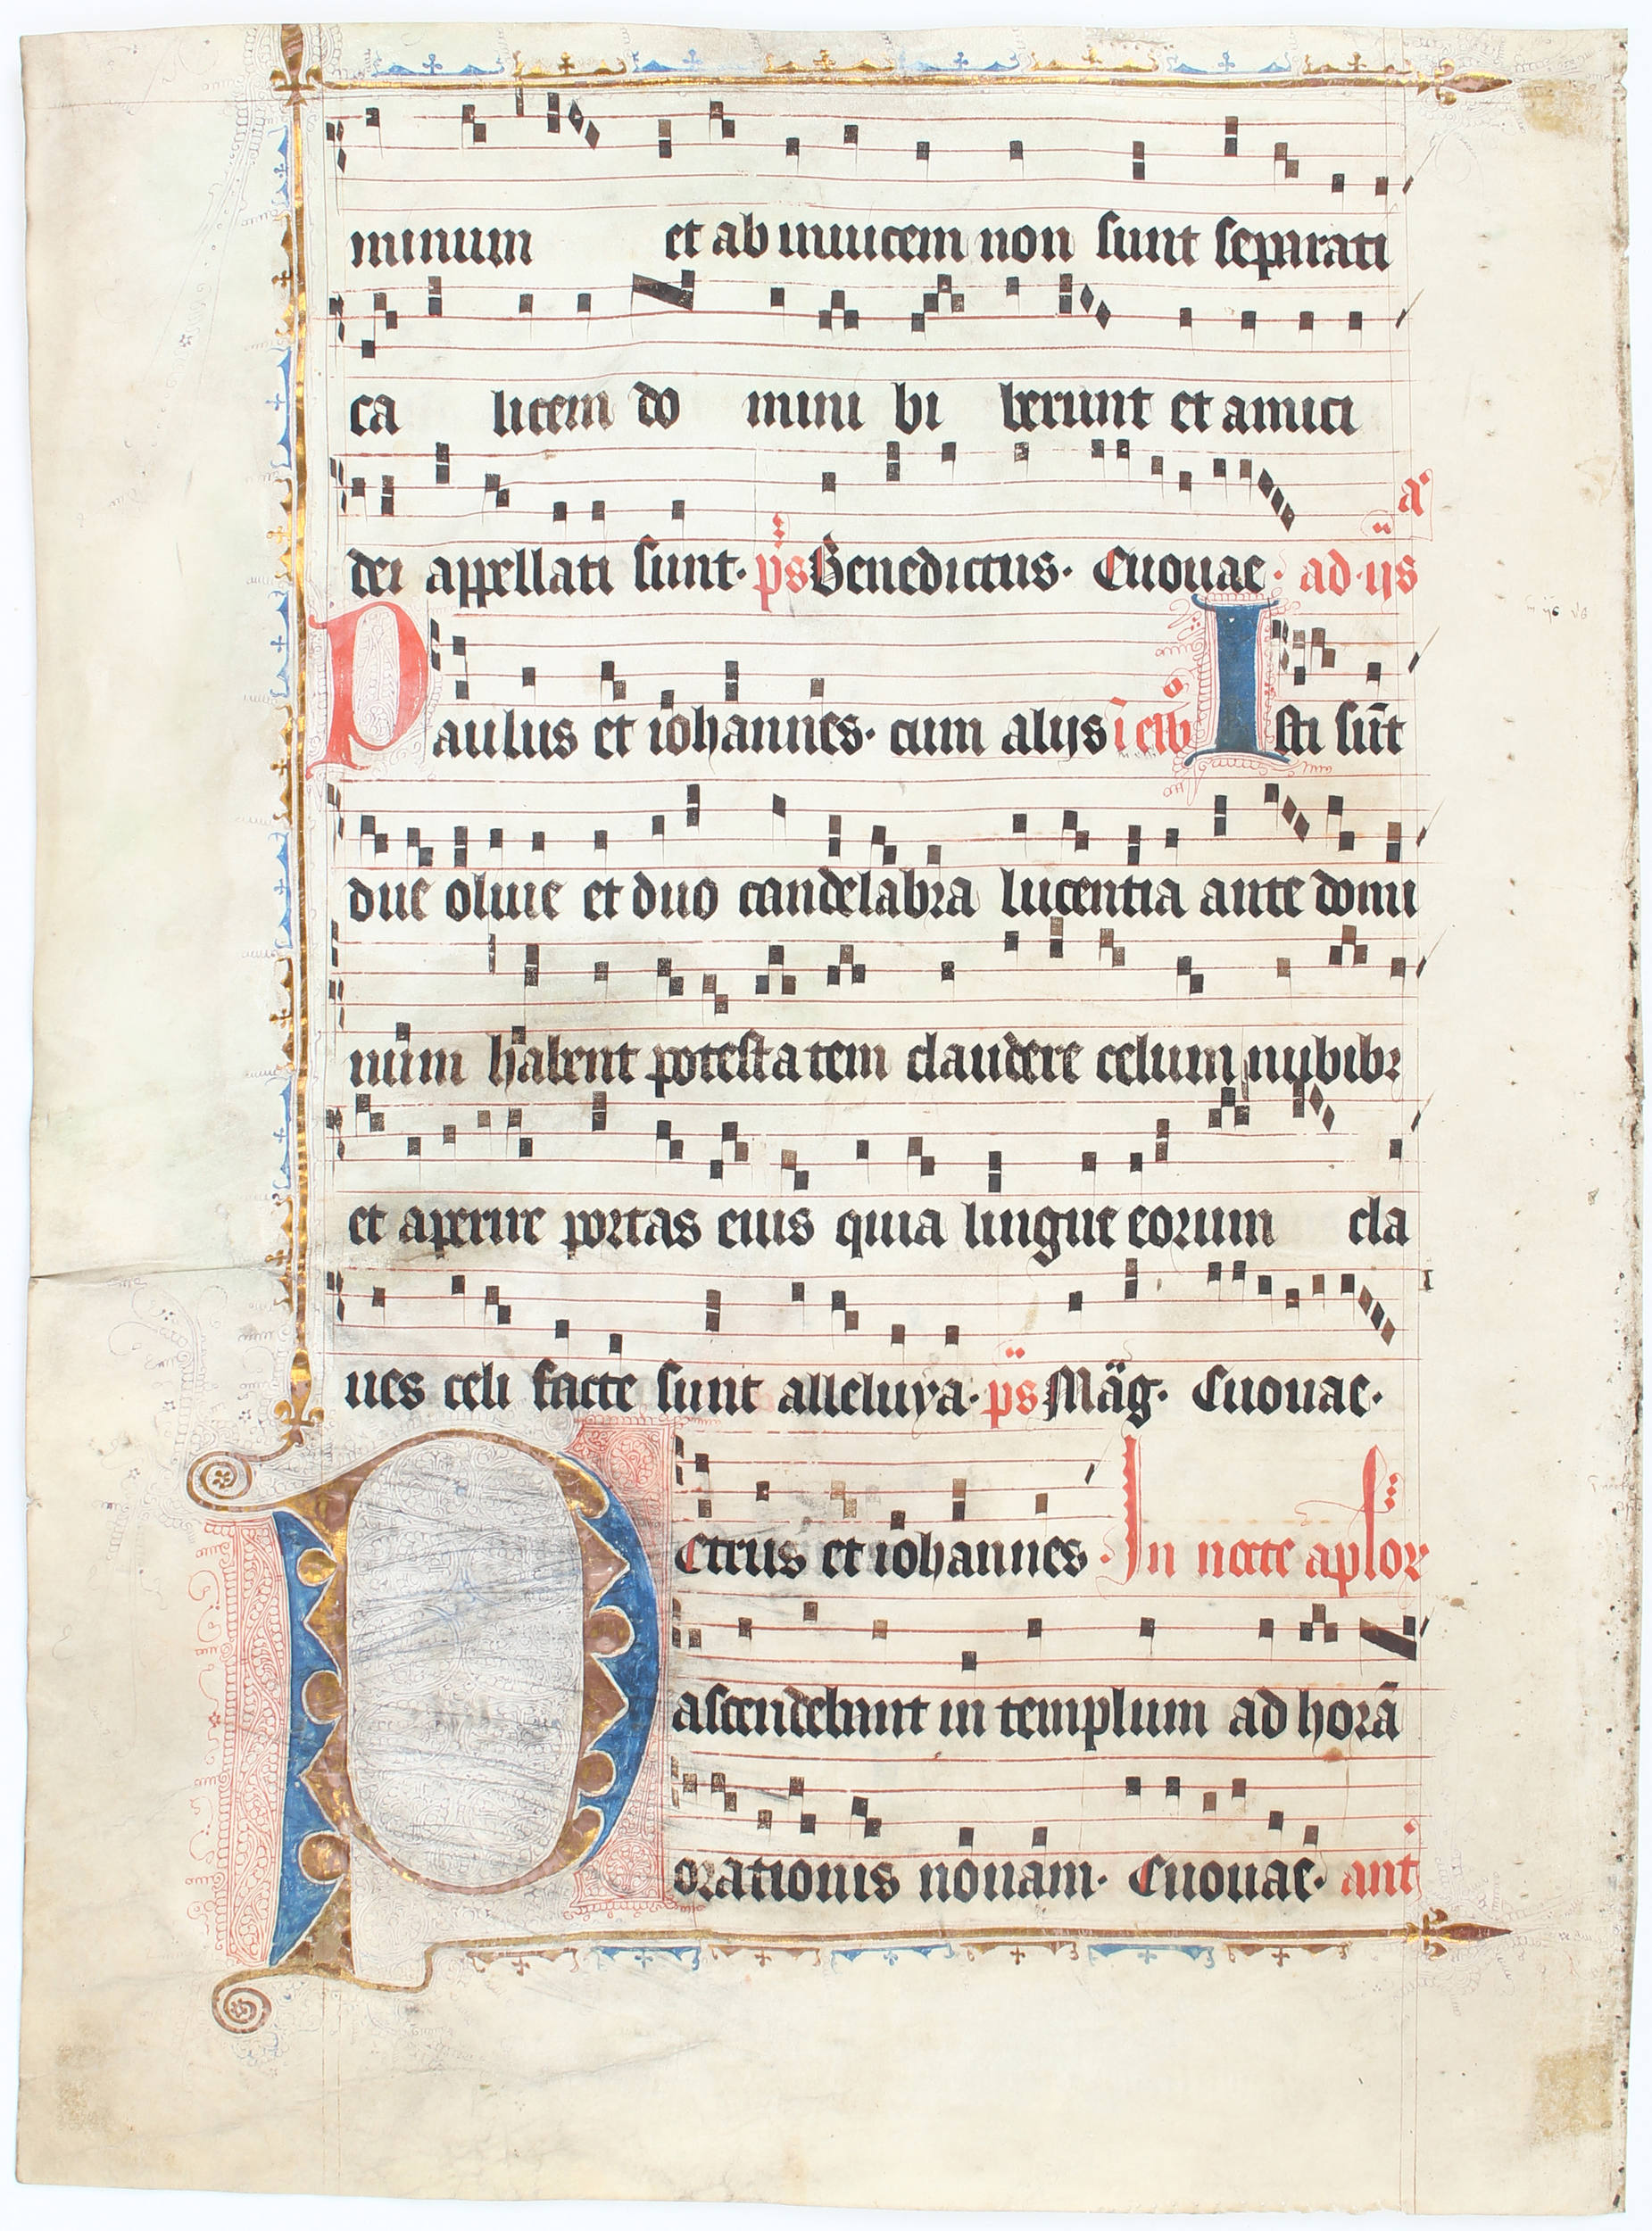 minum et ab inuicem non sunt separati
ca licem do mini bi berunt et amici
dei appellati sunt· ps Benedictus· Euouae· ad ijs a
Paulus et iohannes· cum alijs Isti sūt
due oliue et duo candelabra lucentia ante domi
num habent potestatem claudere celum nubibꝫ
et aperire portas eius quia lingue eorum cla
ues celi facte sunt alleluya· ps Mag· Euouae·
PEtrus et iohannes· In nocte aplor
ascendebant in templum ad horā
orationis nonam· Euouae· ant